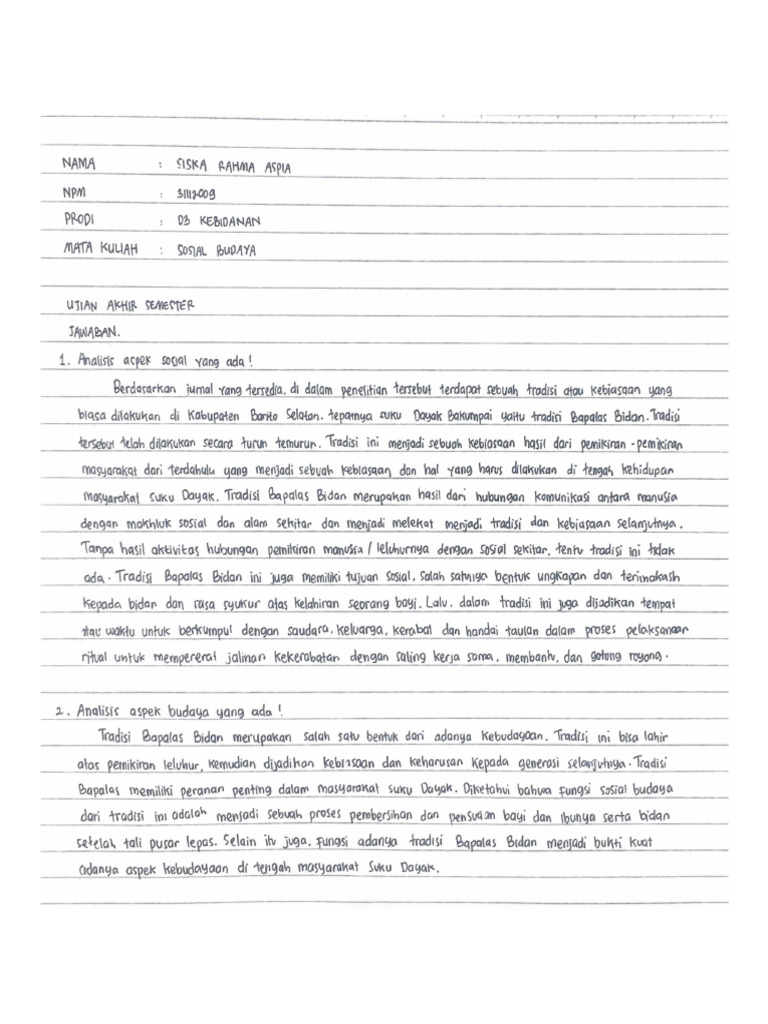 NAMA : SISKA RAHMA ASPIA
NPM : 31112009
PRODI : D3 KEBIDANAN
MATA KULIAH : SOSIAL BUDAYA
UJIAN AKHIR SEMESTER
JAWABAN.
1. Analisis aspek sosial yang ada!
Berdasarkan jurnal yang tersedia, di dalam penelitian tersebut terdapat sebuah tradisi atau kebiasaan yang
biasa dilakukan di Kabupaten Barito Selatan. tepatnya suku Dayak Bakumpai yaitu tradisi Bapalas Bidan. Tradisi
tersebut telah dilakukan secara turun temurun. Tradisi ini menjadi sebuah kebiasaan hasil dari pemikiran-pemikiran
masyarakat dari terdahulu yang menjadi sebuah kebiasaan dan hal yang harus dilakukan di tengah kehidupan
masyarakat suku Dayak. Tradisi Bapalas Bidan merupakan hasil dari hubungan komunikasi antara manusia
dengan makhluk sosial dan alam sekitar dan menjadi melekat menjadi tradisi dan kebiasaan selanjutnya.
Tanpa hasil aktivitas hubungan pemikiran manusia/leluhurnya dengan sosial sekitar, tentu tradisi ini tidak
ada. Tradisi Bapalas Bidan ini juga memiliki tujuan sosial, salah satunya bentuk ungkapan dan terimakash
kepada bidan dan rasa syukur atas kelahiran seorang bayi. Lalu, dalam tradisi ini juga dijadikan tempat
atau waktu untuk berkumpul dengan saudara, keluarga, kerabat dan handai taulan dalam proses pelaksanaan
ritual untuk mempererat jalinan kekerabatan dengan saling kerja sama, membantu, dan gotong royong.
2. Analisis aspek budaya yang ada!
Tradisi Bapalas Bidan merupakan salah satu bentuk dari adanya kebudayaan. Tradisi ini bisa lahir
atas pemikiran leluhur, kemudian dijadikan kebiasaan dan keharusan kepada generasi selanjutnya. Tradisi
Bapalas memiliki peranan penting dalam masyarakat suku Dayak. Diketahui bahwa fungsi sosial budaya
dari tradisi ini adalah menjadi sebuah proses pembersihan dan pensucian bayi dan ibunya serta bidan
setelah tali pusar lepas. Selain itu juga, fungsi adanya tradisi Bapalas Bidan menjadi bukti kuat
adanya aspek kebudayaan di tengah masyarakat suku Dayak.